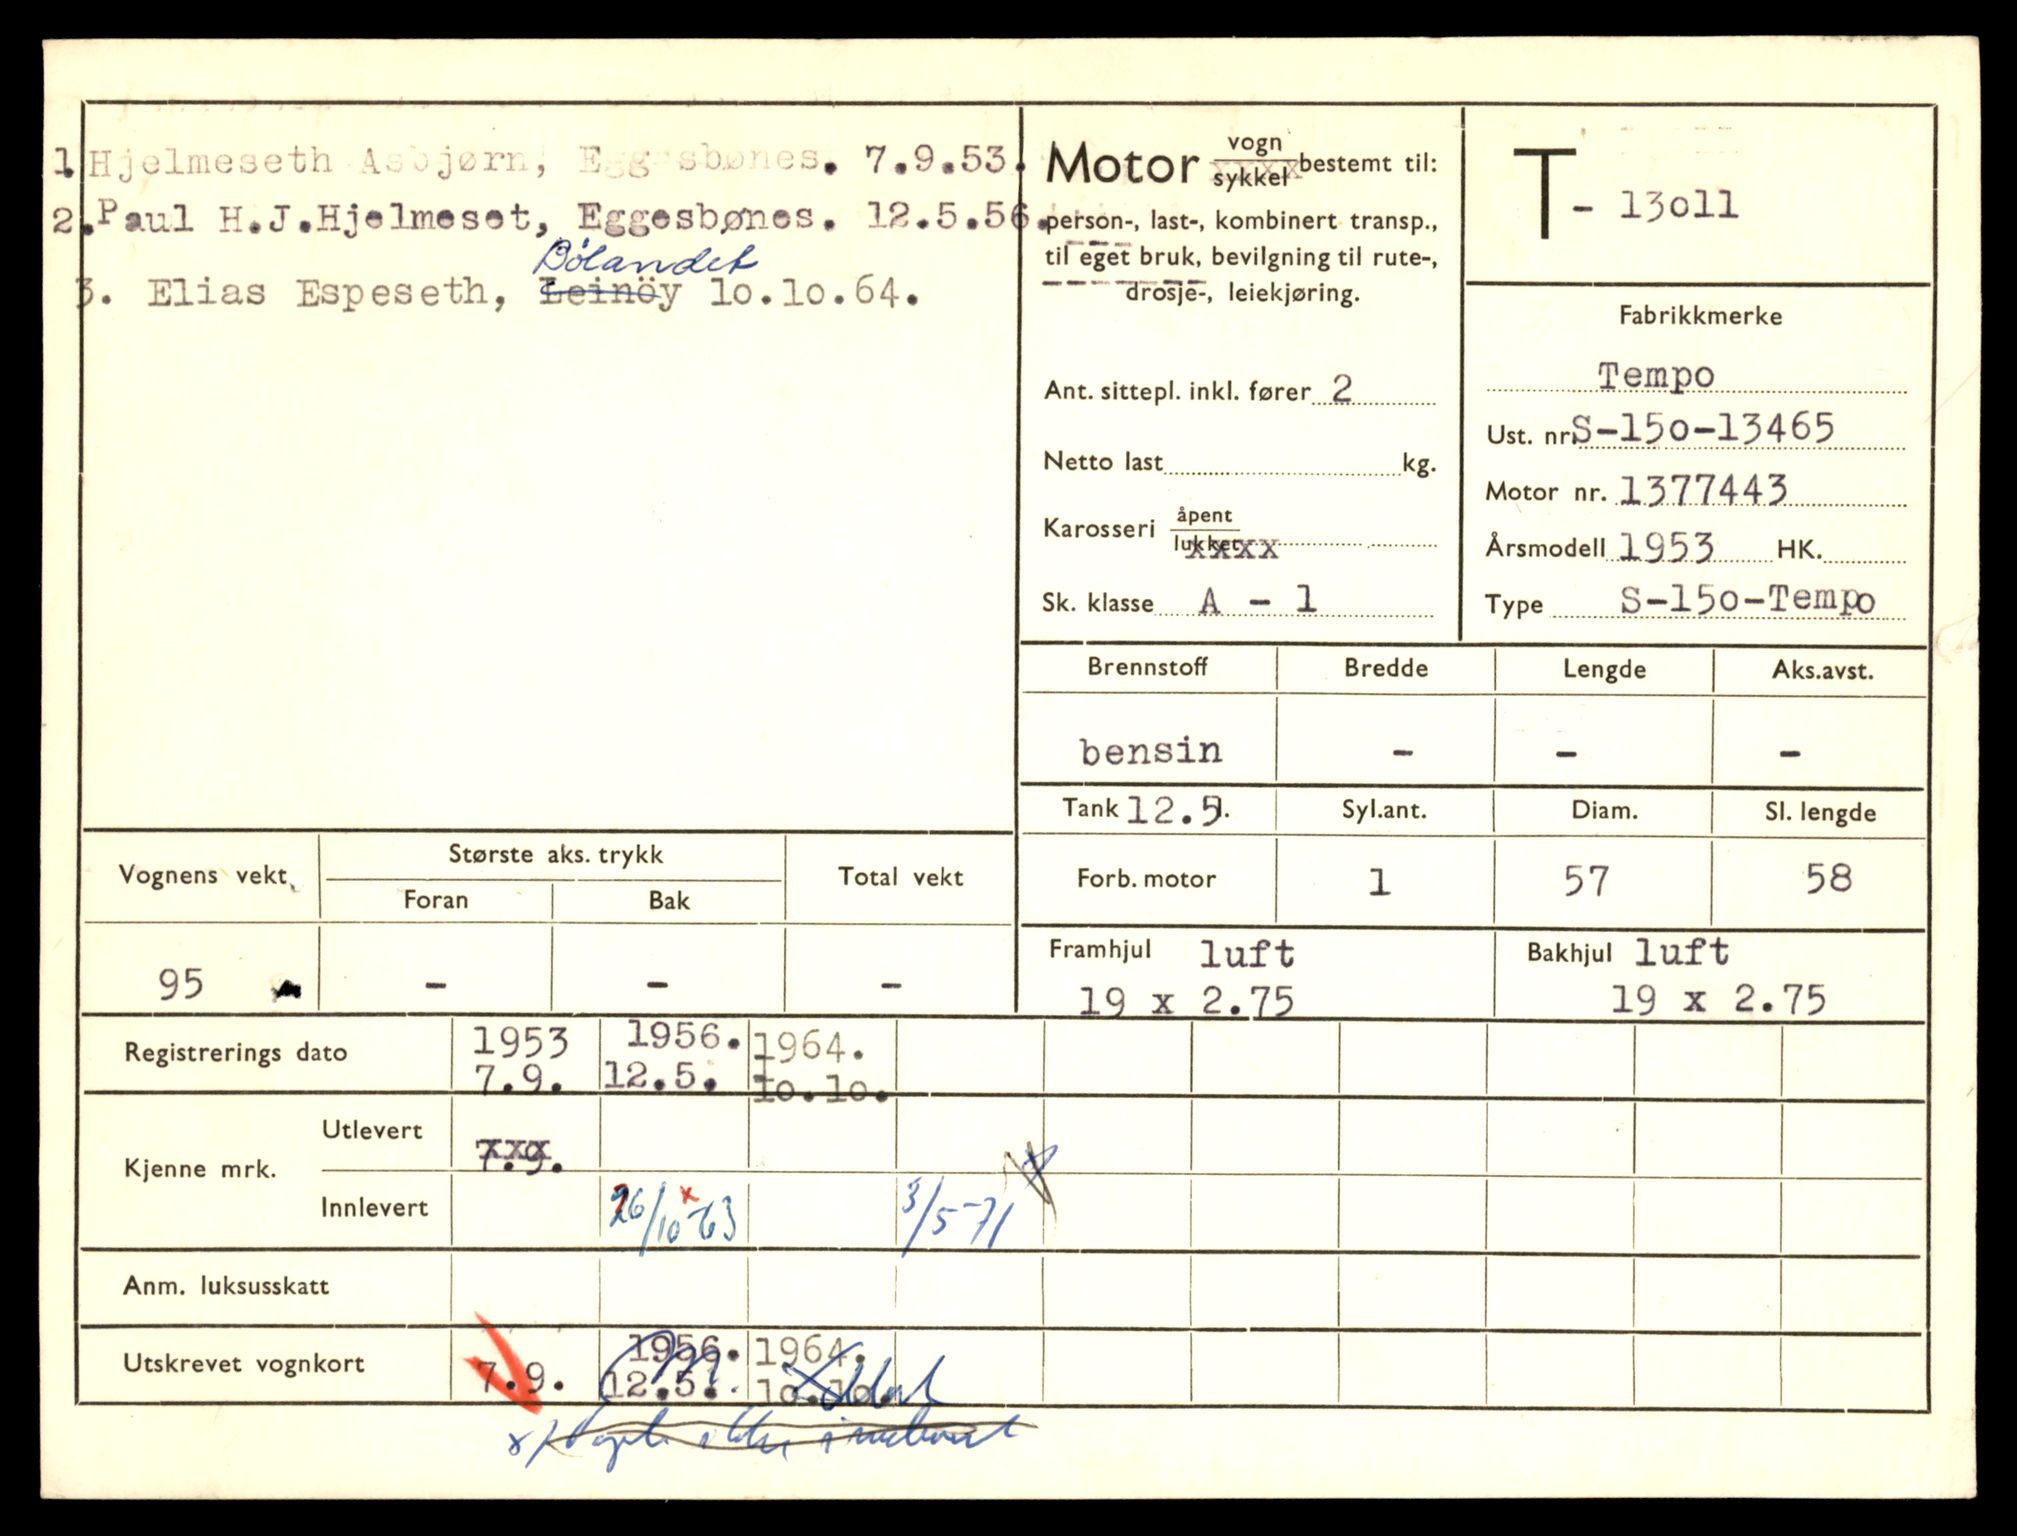 1. Hjelmeseth Asbjørn, Eggesbønes. 7.9.53.
2. Paul H.J.Hjelmeset, Eggesbønes. 12.5.56.
Bølandet
3. Elias Espeseth, Leinöy 10.10.64.
Motor vogn
sykkel xxxx bestemt til:
person-, last-, kombinert transp.,
til eget bruk, bevilgning til rute-,
drosje-, leiekjøring.
Ant. sittepl. inkl. fører 2
Netto last kg.
Karosseri åpent
lukket xxxx
Sk. klasse A - 1
T - 13011
Fabrikkmerke
Tempo
Ust. nr. S-150-13465
Motor nr. 1377443
Årsmodell 1953 HK.
Type S-150-Tempo
Brennstoff Bredde Lengde Aks.avst.
bensin - - -
Tank 12.5 l. Syl.ant. Diam. Sl. lengde
Forb. motor 1 57 58
Framhjul luft Bakhjul luft
19 x 2.75 19 x 2.75
Vognens vekt Største aks. trykk Total vekt
Foran Bak
95 - - -
Registrerings dato 1953 1956. 1964.
7.9. 12.5. 10.10.
Kjenne mrk. Utlevert xxx 7.9.
Innlevert 26/10-63 x 3/5-71
Anm. luksusskatt
Utskrevet vognkort 1956. 1964.
7.9. 12.5. 10.10.
x/ ikke